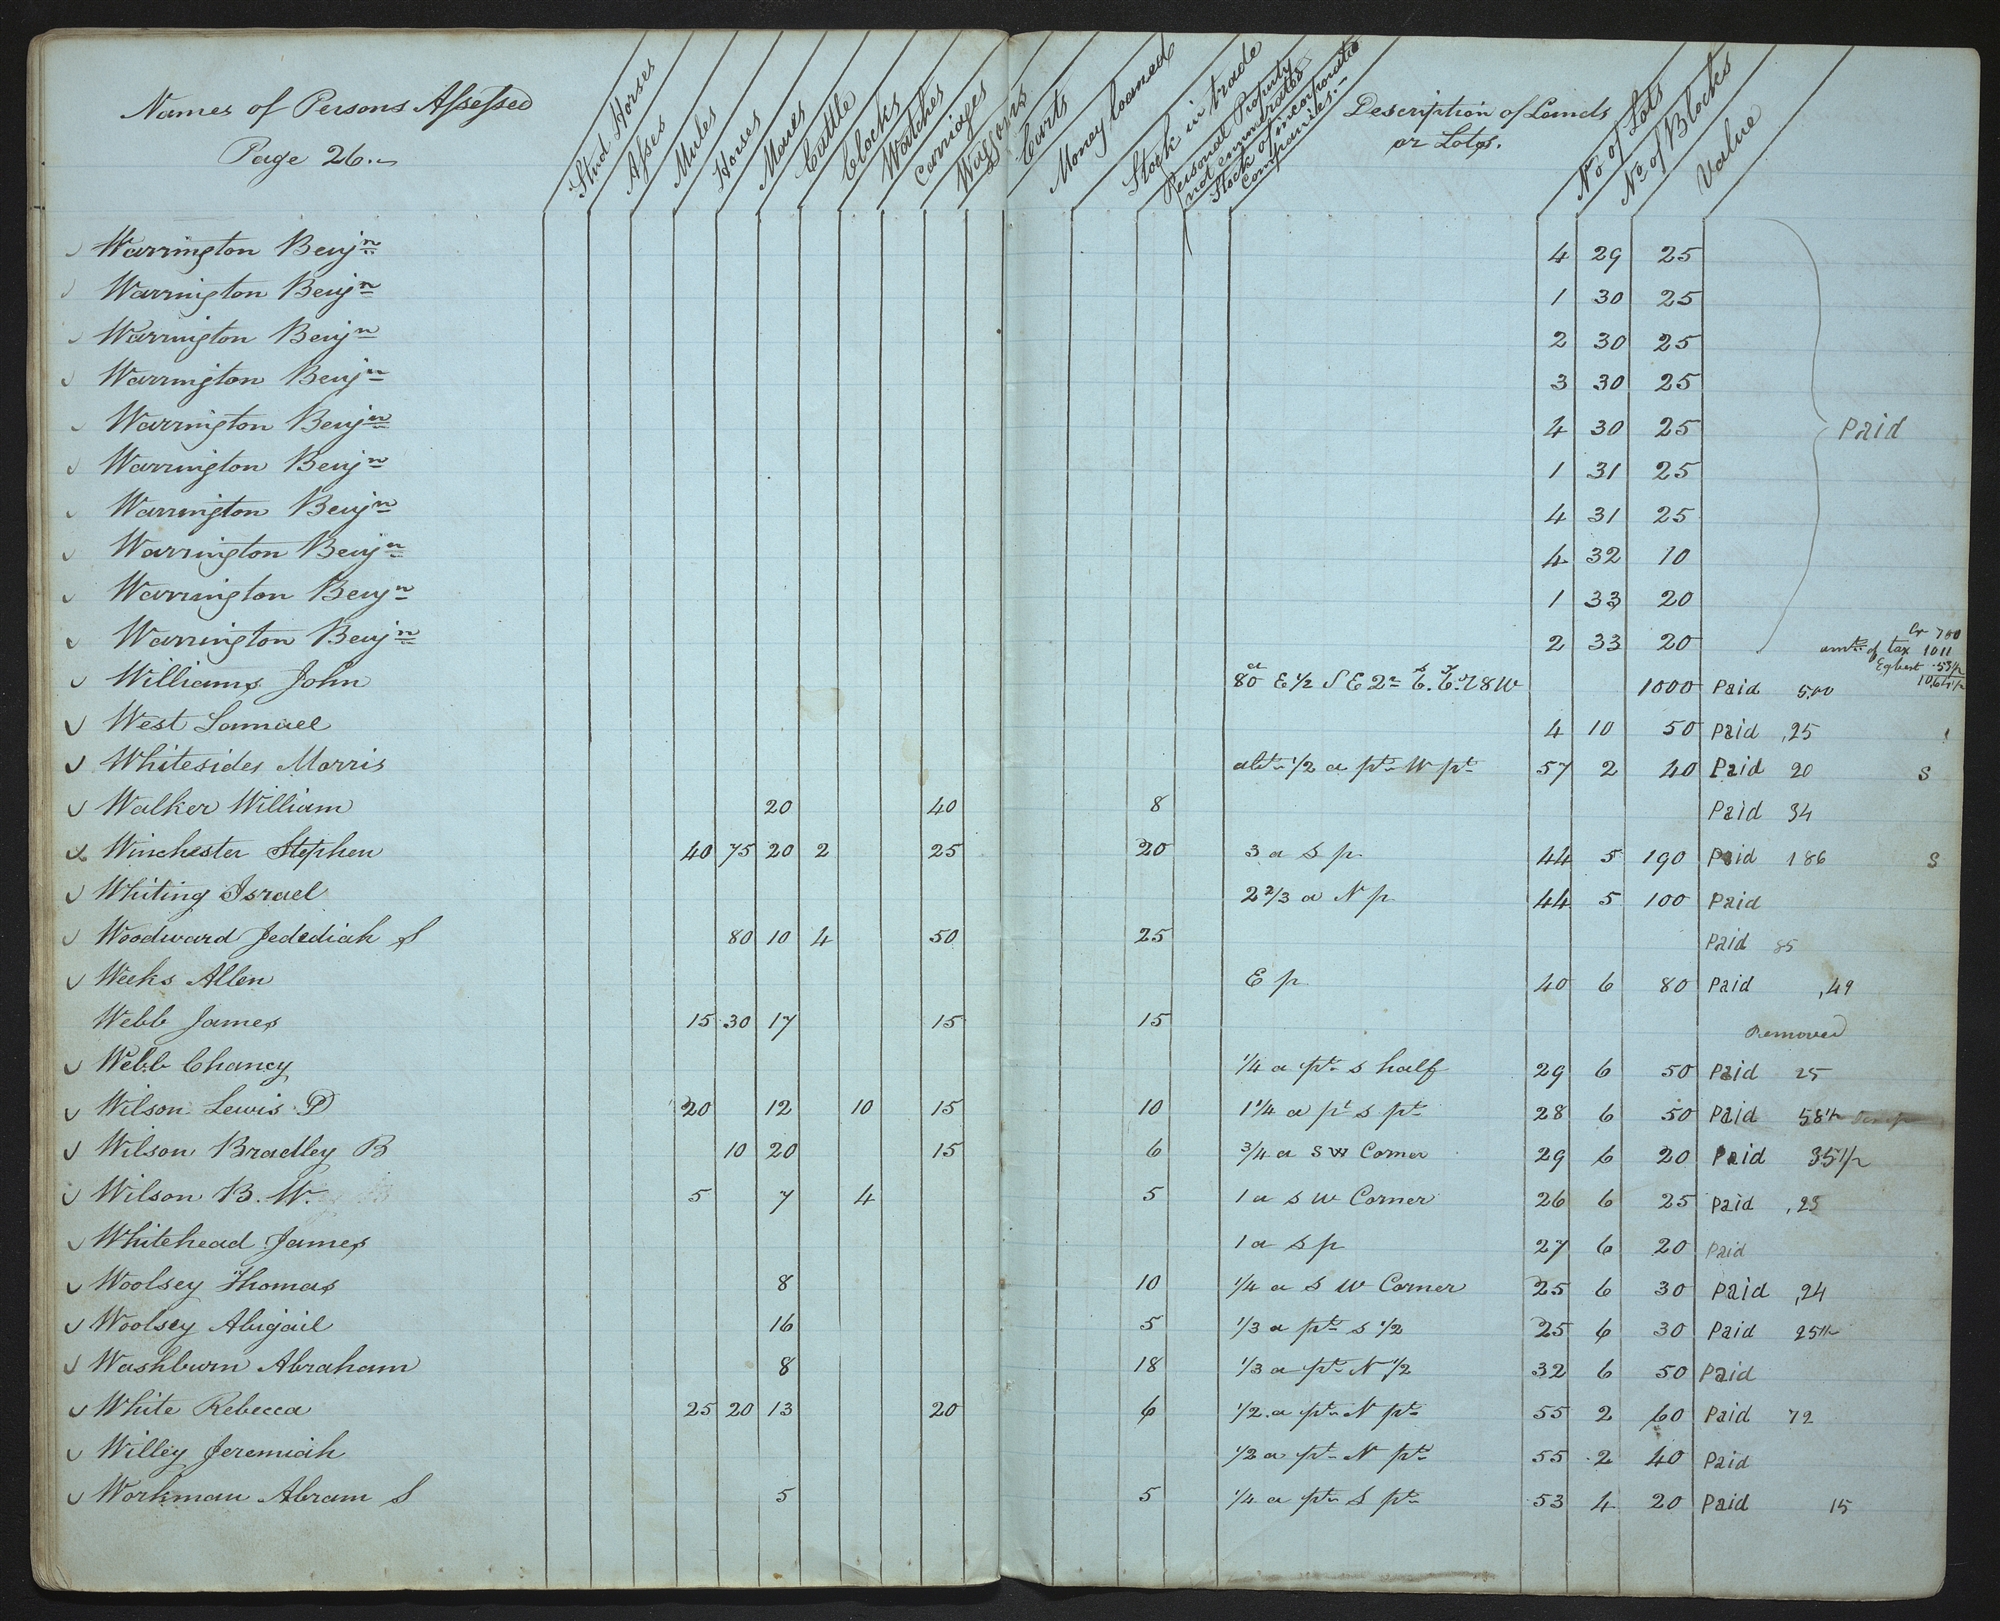 Names of Persons Assessed
Page 26.
Stud Horses
Asses
Mules
Horses
Mares
Cattle
Clocks
Watches
Carriages
Waggons
Carts
Money loaned
Stock in trade
Personal Property
not enumerated
Stock of incorporated
Companies.
Description of Lands
or Lots.
No of Lots
No of Blocks
Value
Warrington Benjn 4 29 25
Warrington Benjn 1 30 25
Warrington Benjn 2 30 25
Warrington Benjn 3 30 25
Warrington Benjn 4 30 25 Paid
Warrington Benjn 1 31 25
Warrington Benjn 4 31 25
Warrington Benjn 4 32 10
Warrington Benjn 1 33 20
Warrington Benjn 2 33 20
Cr 700
amt of tax 1011
Egbert 53 1/2
1064 1/2
Williams John 80 a E 1/2 S E 2 8 W 1000 Paid 5,00
West Samuel 4 10 50 Paid ,25
Whitesides Morris abt 1/2 a pt W pt 57 2 40 Paid 20 S
Walker William 20 40 8 Paid 34
Winchester Stephen 40 75 20 2 25 20 3 a S p 44 5 190 Paid 186 S
Whiting Israel 2 2/3 a N p 44 5 100 Paid
Woodward Jedediah S 80 10 4 50 25 Paid 85
Weeks Allen E p 40 6 80 Paid ,49
Webb James 15 30 17 15 15 Removed
Webb Chancy 1/4 a pt S half 29 6 50 Paid 25
Wilson Lewis D 20 12 10 15 10 1 1/4 a pt S pt 28 6 50 Paid 58 1/2
Wilson Bradley B 10 20 15 6 3/4 a S W Corner 29 6 20 Paid 35 1/2
Wilson B. W. 5 7 4 5 1 a S W Corner 26 6 25 Paid ,23
Whitehead James 1 a S p 27 6 20 Paid
Woolsey Thomas 8 10 1/4 a S W Corner 25 6 30 Paid ,24
Woolsey Abigail 16 5 1/3 a pt S 1/2 25 6 30 Paid 25 1/2
Washburn Abraham 8 18 1/3 a pt N 1/2 32 6 50 Paid
White Rebecca 25 20 13 20 6 1/2 a pt N pt 55 2 60 Paid 72
Willey Jeremiah 1/2 a pt N pt 55 2 40 Paid
Workman Abram S 5 5 1/4 a pt S pt 53 4 20 Paid 15